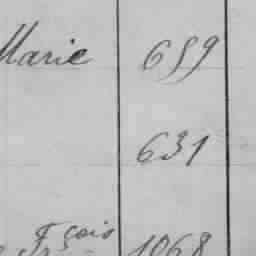 Marie 659
631
Fçois 1068